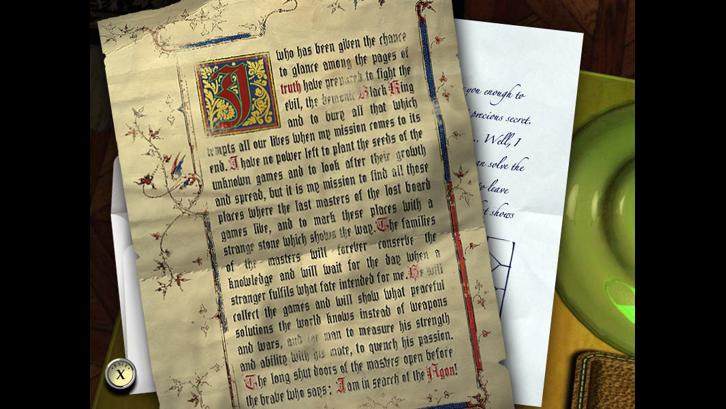 I who has been given the chance
to glance among the pages of
truth have prepared to fight the
evil, the demonic Black King
and to bury all that which
tempts all our lives when my mission comes to its
end. I have no power left to plant the seeds of the
unknown games and to look after their growth
and spread, but it is my mission to find all those
places where the last masters of the lost board
games live, and to mark these places with a
strange stone which shows the way. The families
of the masters will forever conserve the
knowledge and will wait for the day when a
stranger fulfils what fate intended for me. He will
collect the games and will show what peaceful
solutions the world knows instead of weapons
and wars, and for man to measure his strength
and ability with his mate, to quench his passion.
The long shut doors of the masters open before
the brave who says: I am in search of the Agon!
you enough to
precious secret.
... Well, I
can solve the
to leave
it shows
X